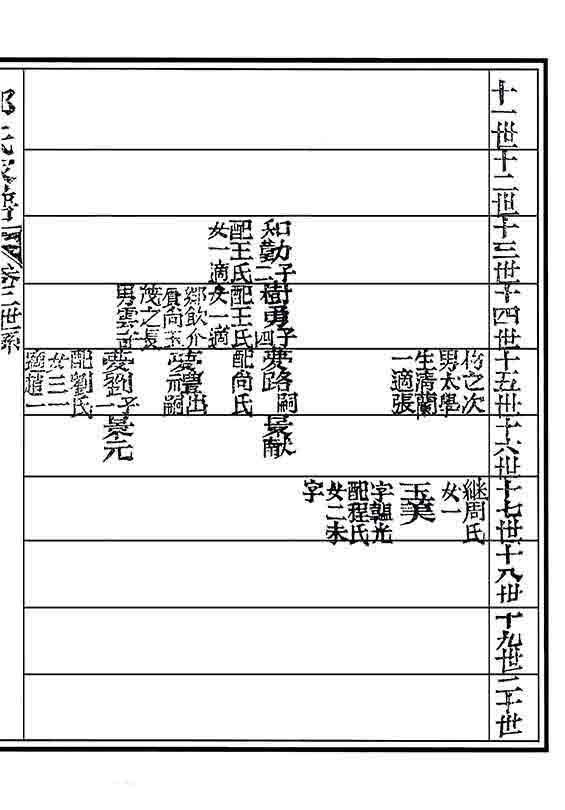 十一世
十二世
十三世
十四世
十五世
十六世
十七世
十八世
十九世
二十世
和勤
子二
配王氏
女一適
樹勇
子四
配王氏
女一適
鄉飲介
賔尚玉
茂之長
男雲奇
之次
男太學
生清蘭
一適張
夢路
嗣
配尚氏
夢禮
出
夢元
嗣
夢劉
子一
配劉氏
女三一
適趙一
景猷
景元
継周氏
女一
玉美
字韞光
配程氏
女二未
字
氏家譜
卷二世系